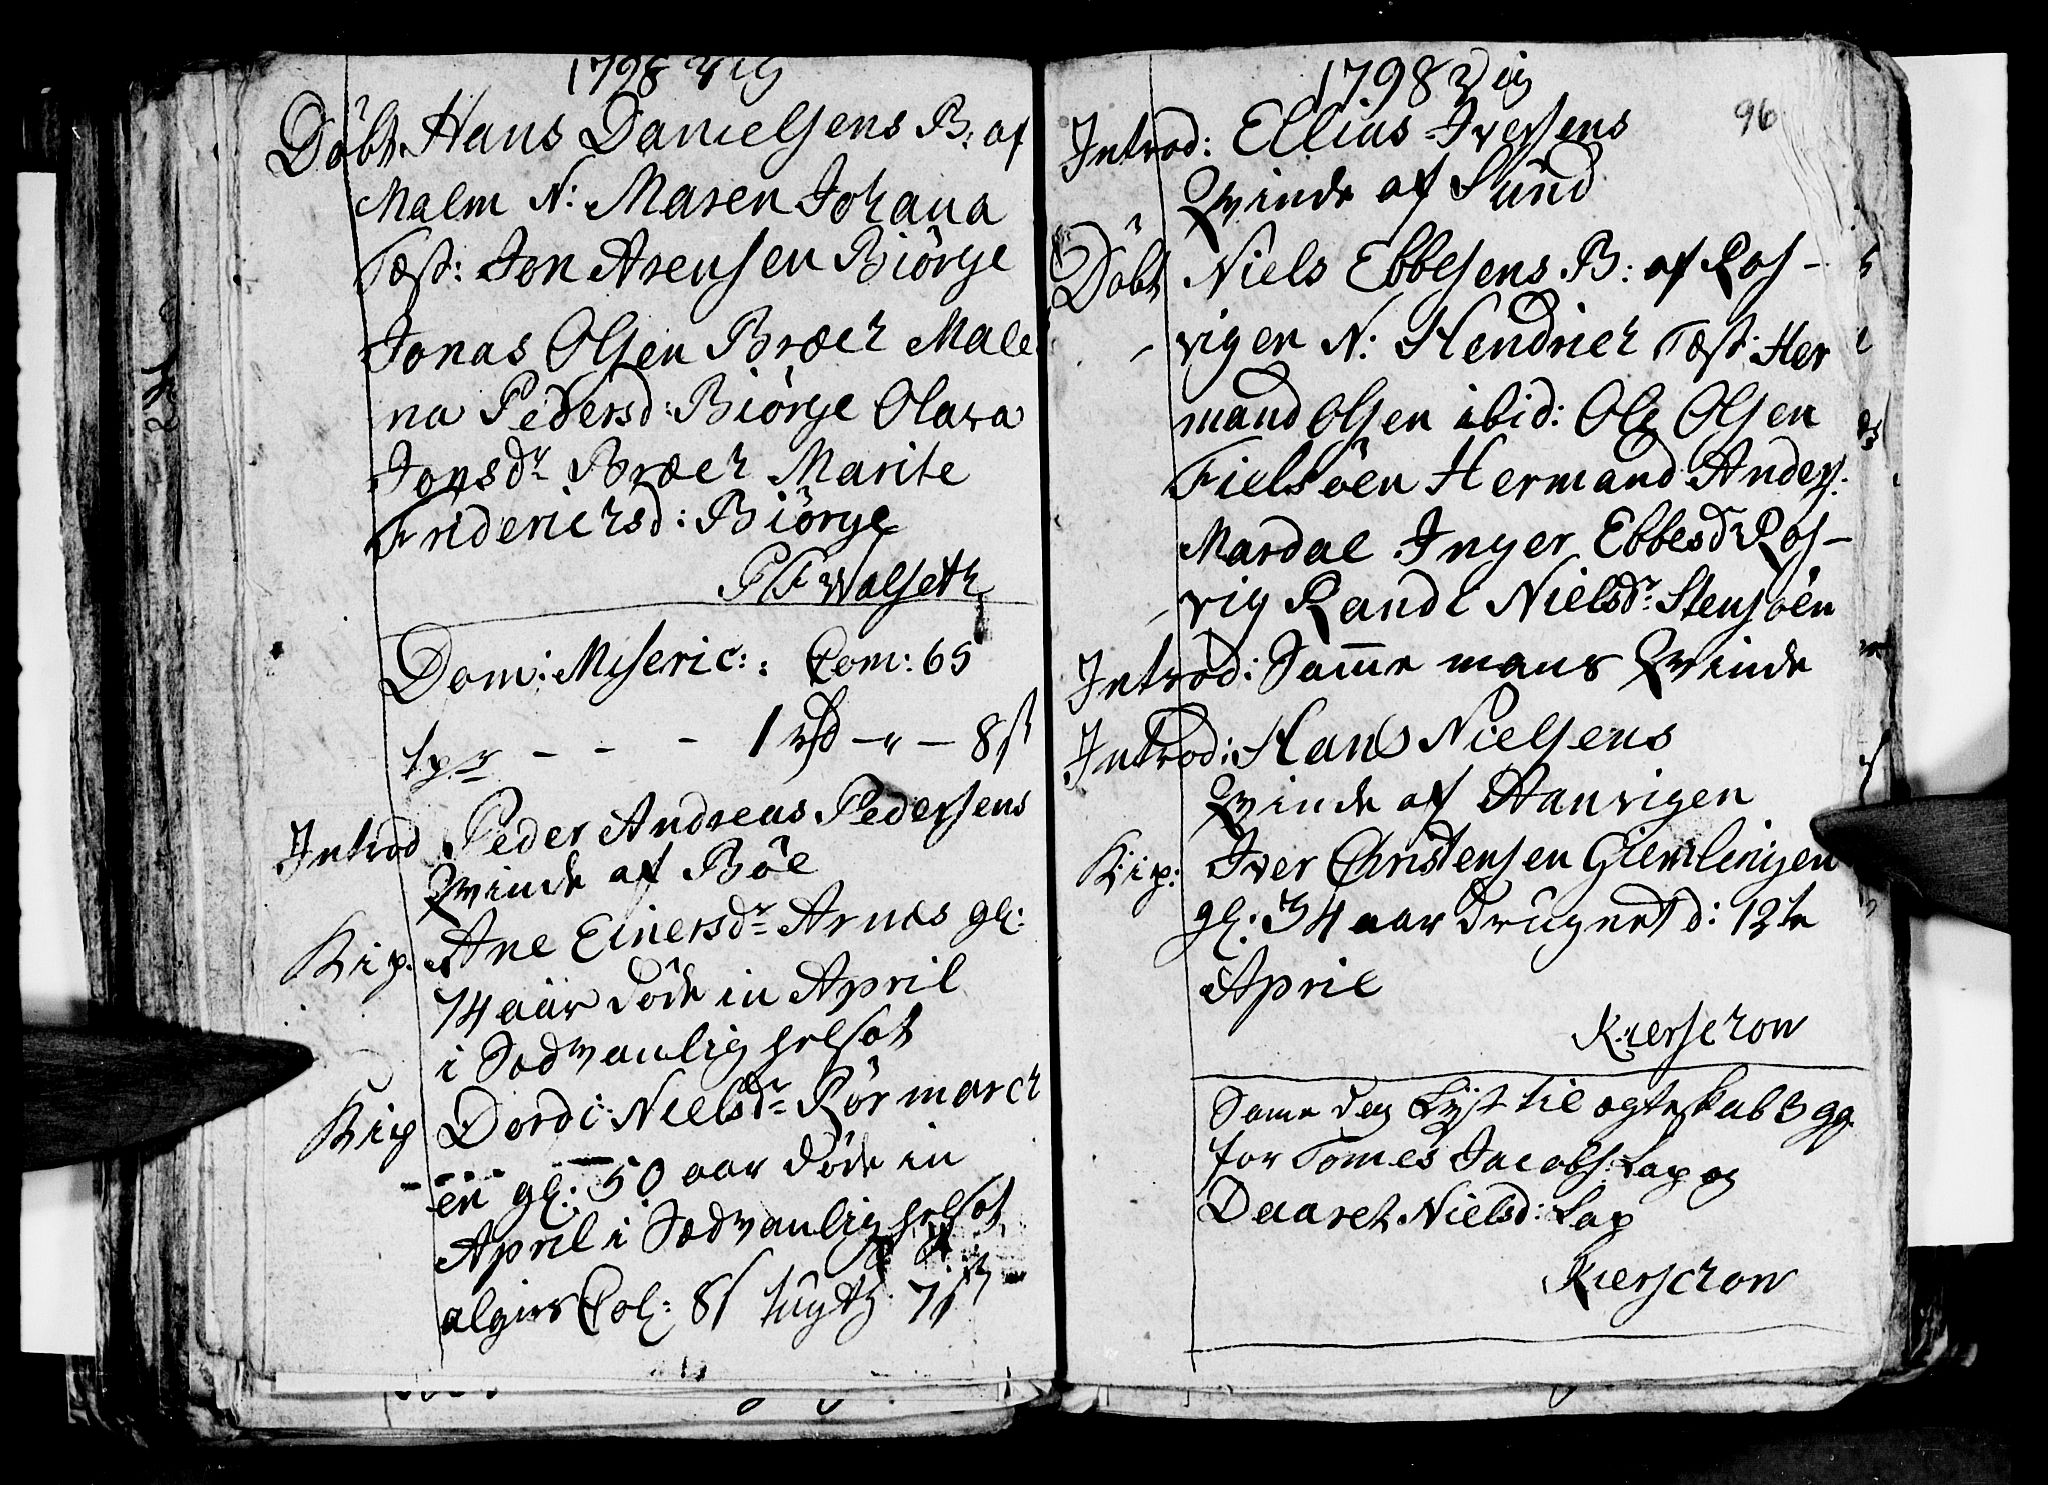 1798 Vig
Döbt Hans Danielsens B: af
Malm N: Maren Johana
Tæst: Jon Arensen Biörge
Jonas Olsen Bræch Male
na Pedersd: Biörge Olava
Jonsdr Bræch Marite
Friderichsd: Biörge
Walseth
Dom: Miseric: : Com: 65
1 rd – " – 8 s
Introd Peder Andreas Pedersens
Qvinde af Böe
Kip. Ane Einersdr Arnes gl:
74 aar döde in April
i Sædvanlig helsot
Kip Dordi Nielsdr Rörmarch
en gl: 50 aar döde in
April i Sædvanlig helsot
8 s
1798 Vig
96
Introd: Ellias Iversens
Qvinde af Sund
Döbt Niels Ebbesens B: af Ros-
vigen N: Hendrich Tæst: Her
mand Olsen ibid: Ole Olsen
Fielsöen Hermand Anders:
Mardal Inger Ebbesd Ros-
vig Randi Nielsdr Stensöen
Introd: Samme mans Qvinde
Introd: Hans Nielsens
Qvinde af Aanvigen
Kip: Iver Christensen Giemlingen
gl: 34 aar drugnet d: 12te
April
Kierschow
Same dag Lyst til ægteskab 3 gg
for Tomes Jacobs: Lap og
Daaret Nielsd: Lap
Kierschow